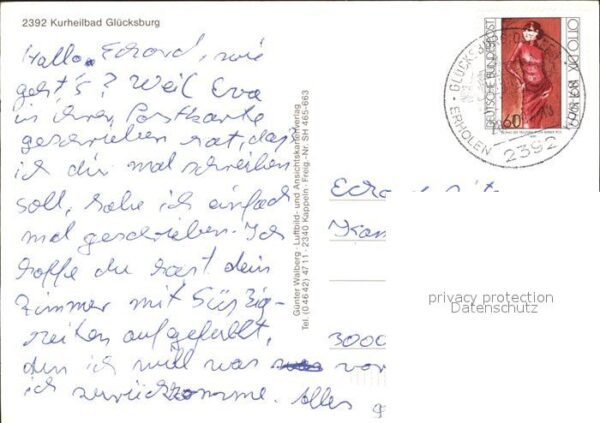 2392 Kurheilbad Glücksburg
Hallo Eckard, wie
geht's? Weil Eva
in ihrer Postkarte
geschrieben hat, daß
ich dir mal schreiben
soll, habe ich einfach
mal geschrieben. Ich
hoffe du hast dein
Zimmer mit Süßig-
keiten aufgefüllt,
denn ich will was vor
ich zurückkomme. Alles
Günter Walberg · Luftbild- und Ansichtskartenverlag
Tel. (0 46 42) 47 11 · 2340 Kappeln · Freig.-Nr. SH 465-663
DEUTSCHE BUNDESPOST
OTTO DIX
60
GLÜCKSBURG
ERHOLEN
2392
3000
privacy protection
Datenschutz